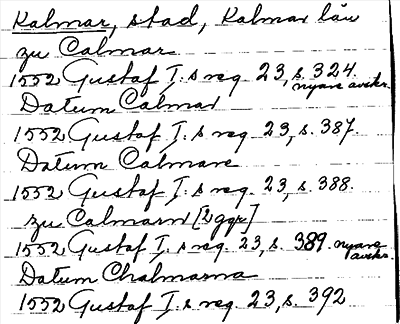 Kalmar, stad, Kalmar län
zu Calmar
1552 Gustaf I:s reg. 23, s. 324. nyare avskr.
Datum Calmar
1552 Gustaf I:s reg. 23, s. 387.
Datum Calmare
1552 Gustaf I:s reg. 23, s. 388.
zu Calmarn [2 ggr]
1552 Gustaf I:s reg. 23, s. 389. nyare avskr.
Datum Chalmarna
1552 Gustaf I:s reg. 23, s. 392